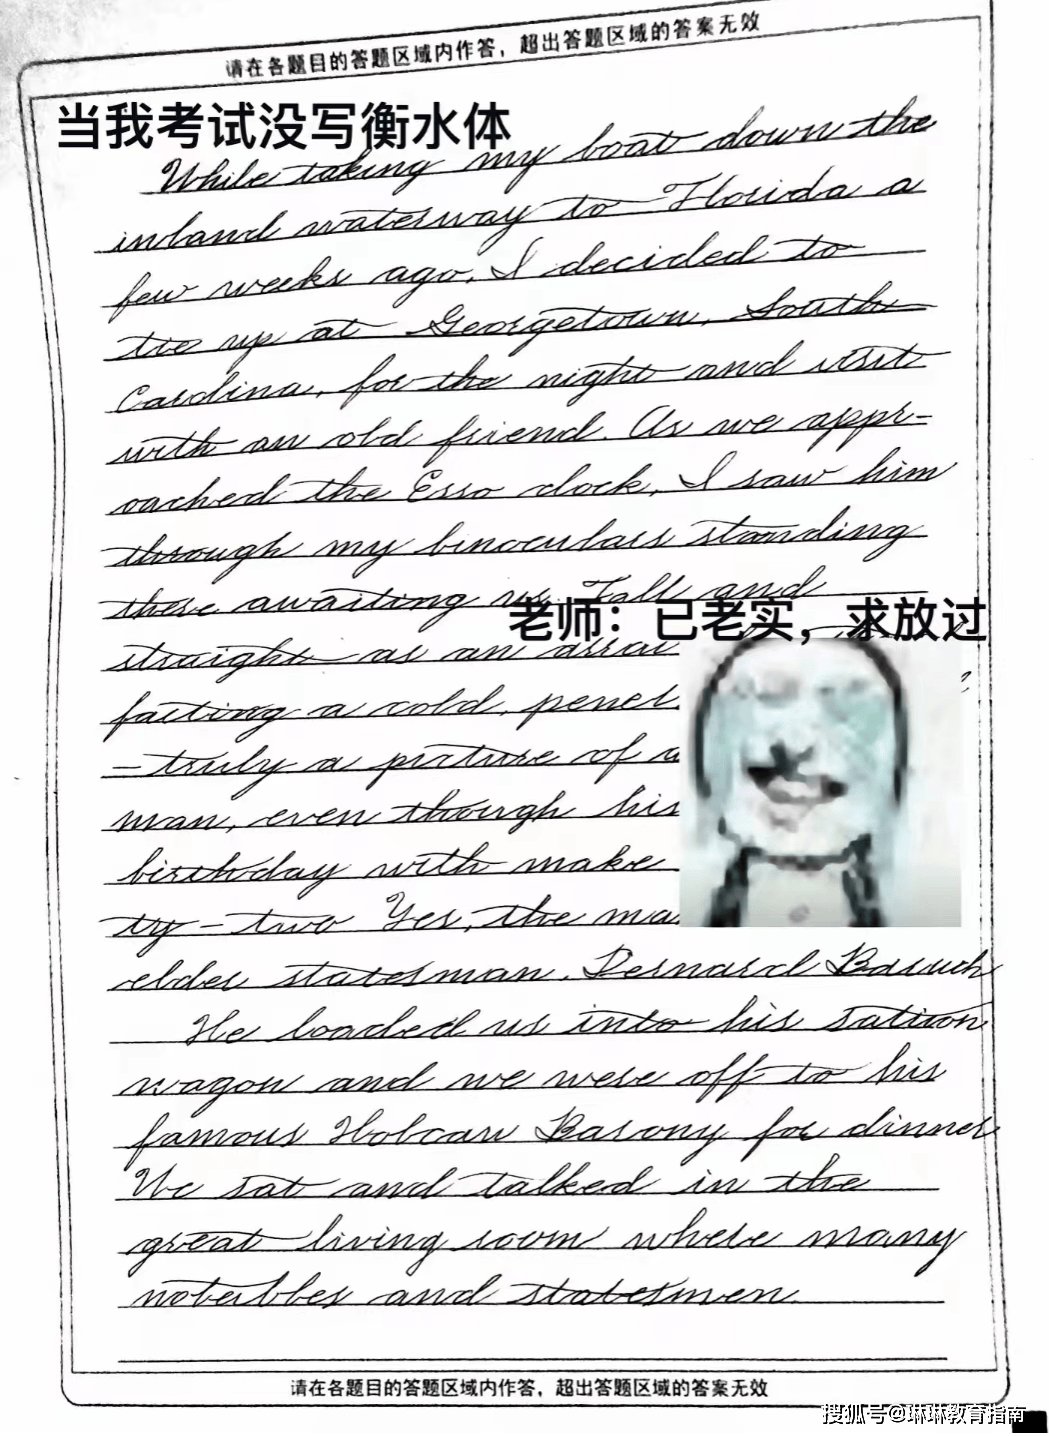 请在各题目的答题区域内作答，超出答题区域的答案无效
当我考试没写衡水体
While taking my boat down the
inland waterway to Florida a
few weeks ago, I decided to
tie up at Georgetown, South
Carolina, for the night and visit
with an old friend. As we appr-
oached the Esso dock, I saw him
through my binoculars standing
there awaiting us. Tall and
老师：已老实，求放过
straight as an
a cold,
-truly a picture of a
man, even though his
birthday with make
ty-two Yes, the
elder statesman, Bernard Baruch
He loaded us into his sation
wagon and we were off to his
famous Hobcaw Barony for dinner
We sat and talked in the
great living room where many
and statesmen
请在各题目的答题区域内作答，超出答题区域的答案无效
搜狐号@琳琳教育指南